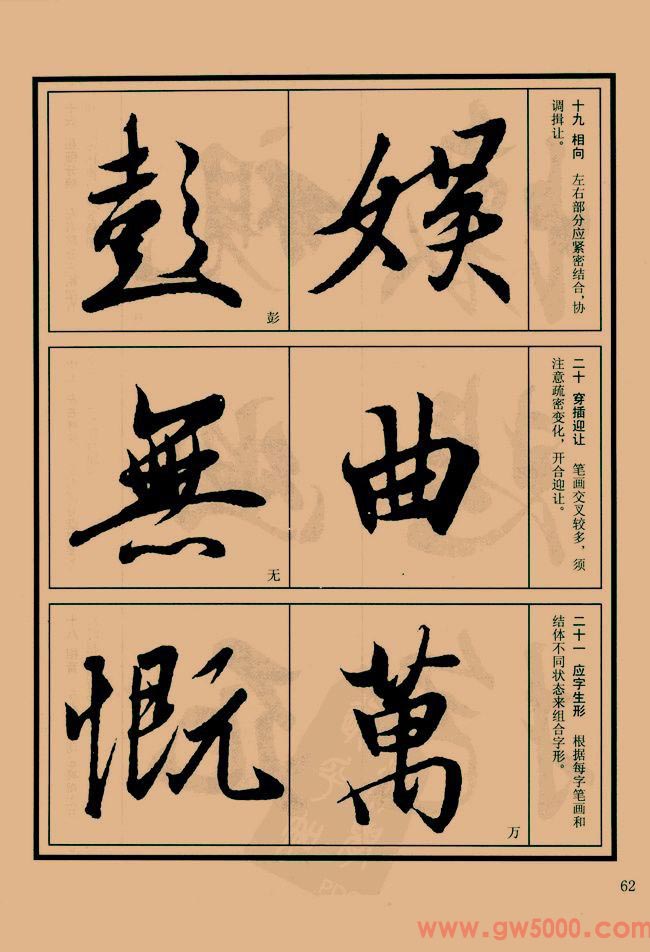 十九 相向 左右部分应紧密结合，协
调揖让。
娱
彭
彭
二十 穿插迎让 笔画交叉较多，须
注意疏密变化，开合迎让。
曲
無
无
二十一 应字生形 根据每字笔画和
结体不同状态来组合字形。
萬
万
慨
62
www.gw5000.com